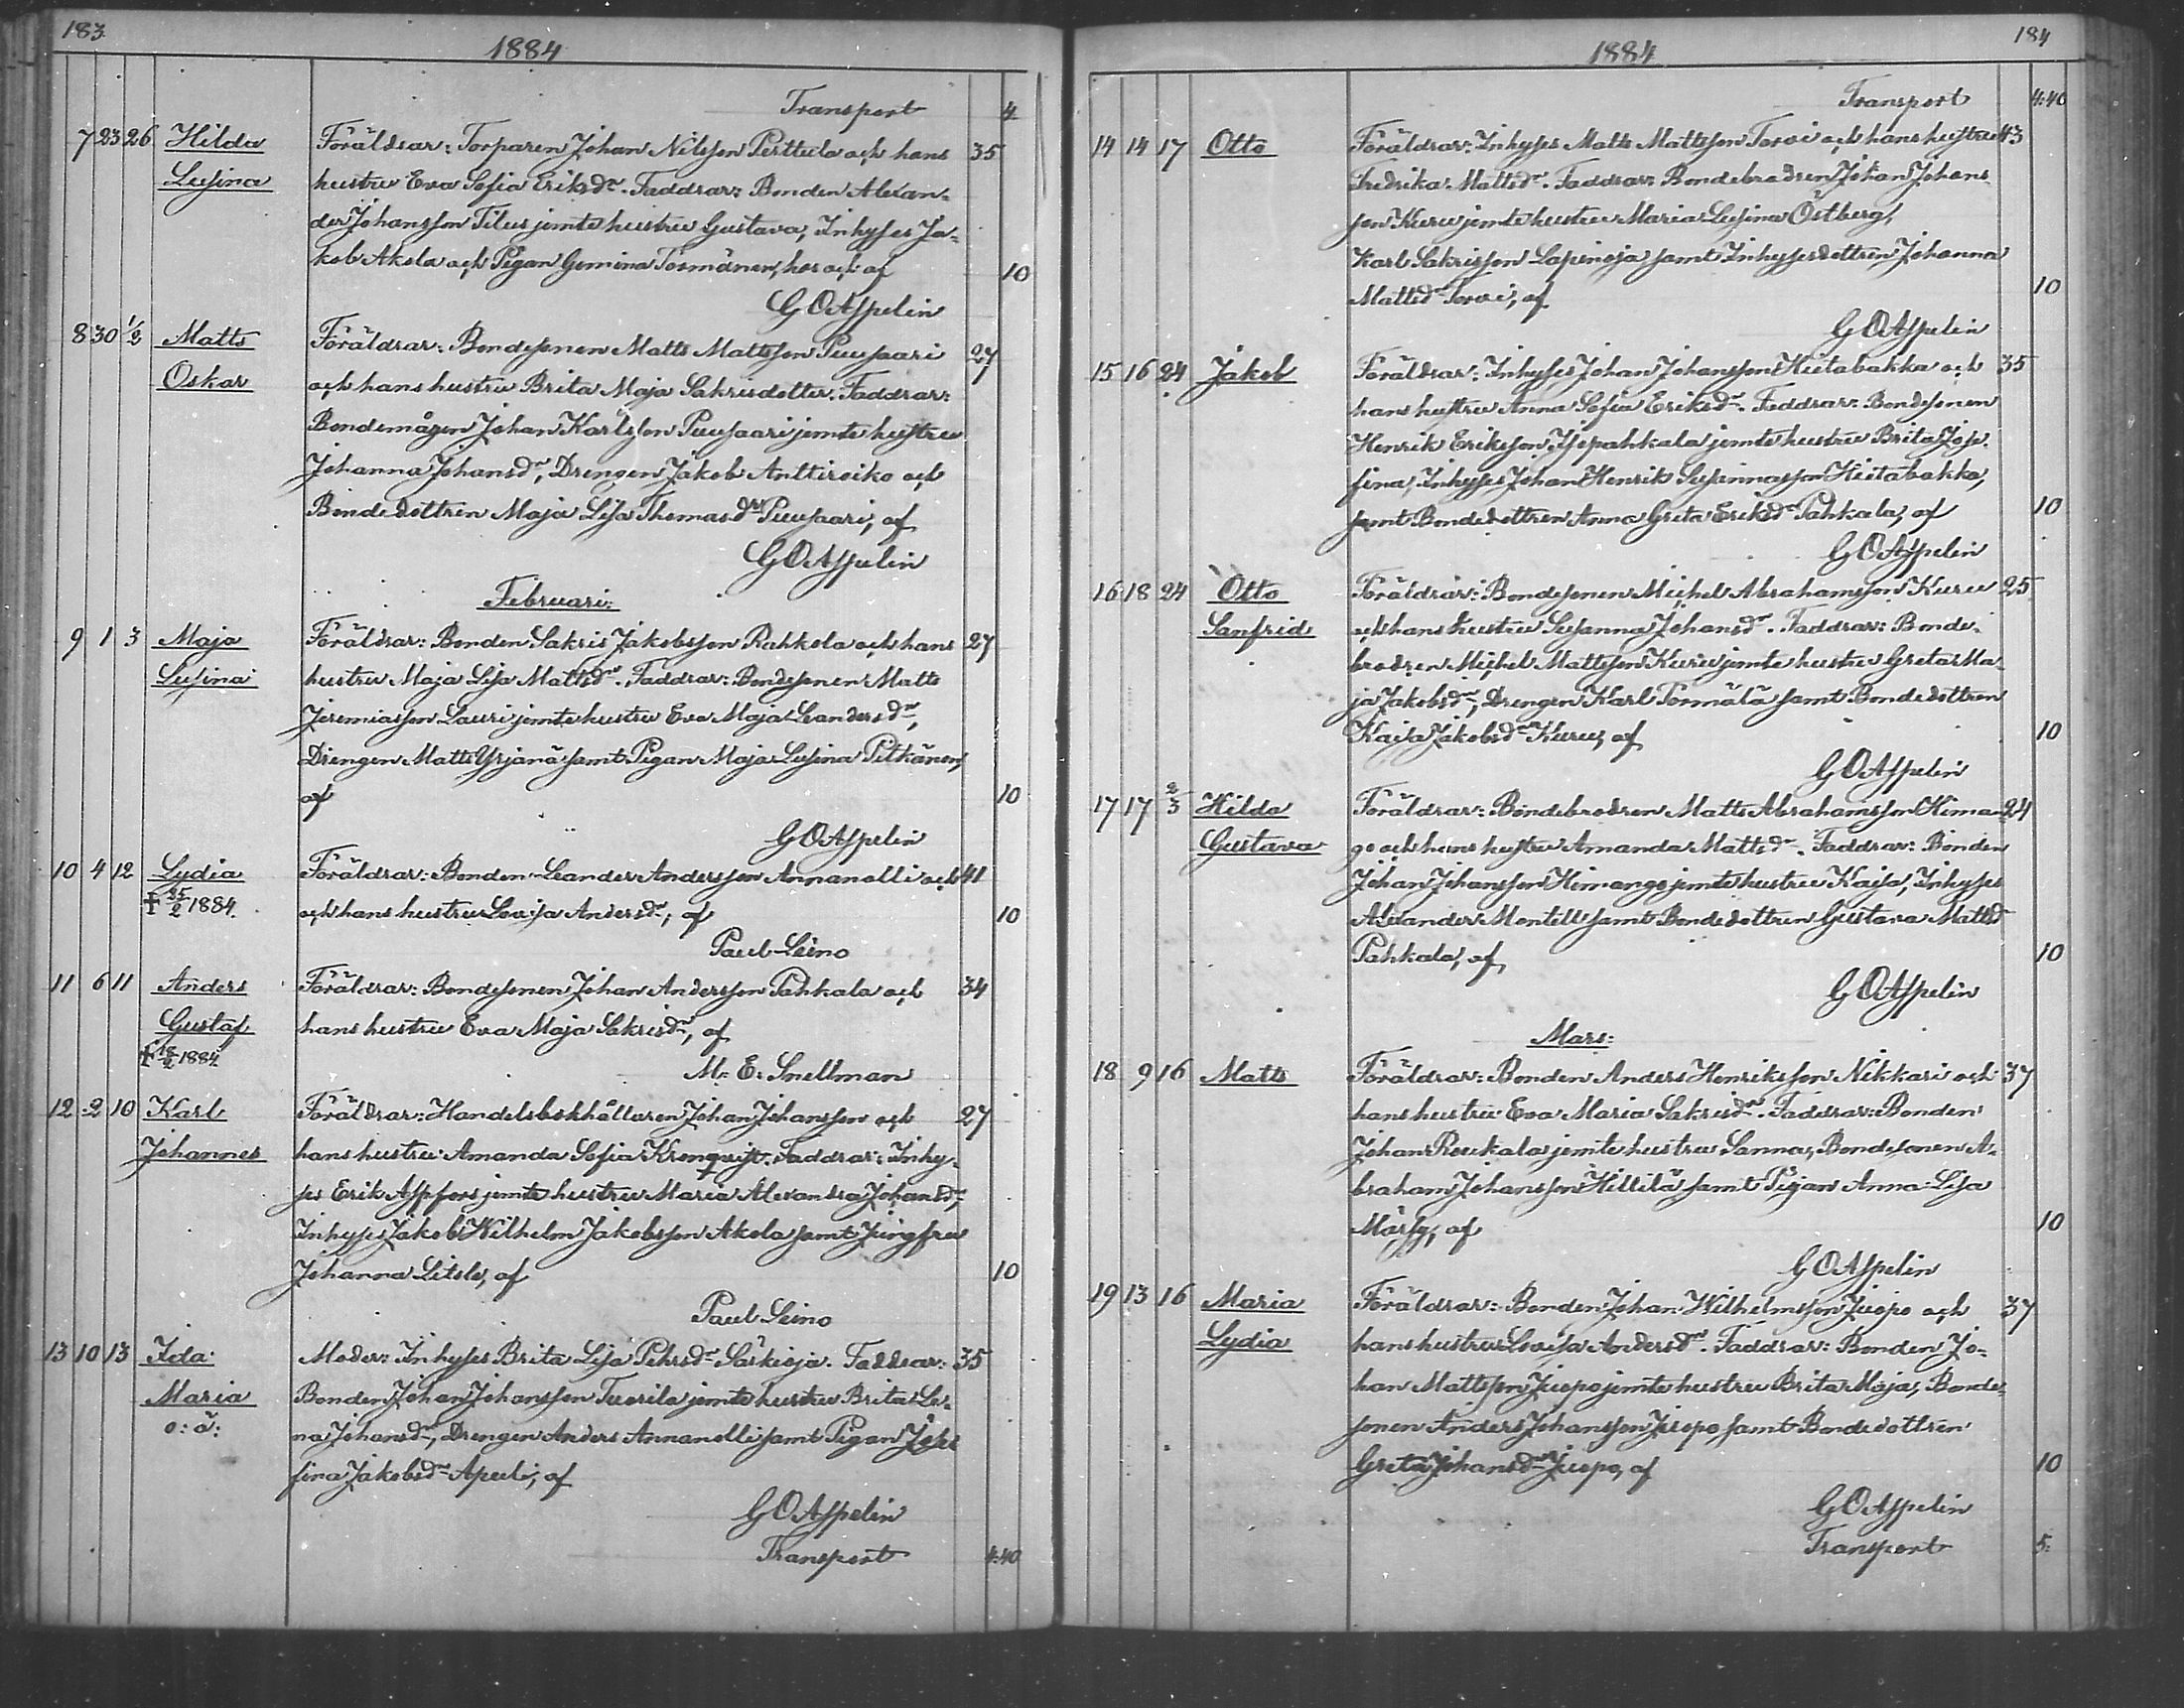 183
1884
Transport 4
7 23 26 Hilda Föräldrar: Torparen Johan Nilsson Perttula och hans 35
Lusina hustru Eva Sofia Eriksdr. Faddrar: Bonden Alexan-
der Johansson Titus jemte hustru Gustava, Inhyses Ja-
kob Akola och Pigan Gemina Tormänen, hos och af 10
G O Aspelin
8 30 1/2 Matts Föräldrar: Bondesonen Matts Mattsson Puusaari 27
Oskar och hans hustru Brita Maja Sakrisdotter. Faddrar:
Bondemågen Johan Karlsson Puusaari jemte hustru
Johanna Johansdr, Drengen Jakob Anttiroiko och
Bondedottren Maja Lisa Thomasdr Puusaari, af
G O Aspelin
Februari:
9 1 3 Maja Föräldrar: Bonden Sakris Jakobsson Rahkola och hans 27
Lusina hustru Maja Lisa Mattsdr. Faddrar: Bondesonen Matts
Jeremiasson Lauri jemte hustru Eva Maja Leandersdr,
Drengen Matts Yrjänä samt Pigan Maja Lusina Pitkänen,
af 10
G O Aspelin
10 4 12 Lydia Föräldrar: Bonden Leander Andersson Annanolli och 41
† 25/2 1884. och hans hustru Lovisa Andersdr, af 10
Paul Leino
11 6 11 Anders Föräldrar: Bondesonen Johan Andersson Pahkala och 34
Gustaf hans hustru Eva Maja Sakrisdr, af
† 18/2 1884. M. E. Snellman
12 2 10 Karl Föräldrar: Handelsbokhållaren Johan Johansson och 27
Johannes hans hustru Amanda Sofia Kronqvist. Faddrar: Inhy-
ses Erik Aspfors jemte hustru Maria Alexandra Johansdr,
Inhyses Jakob Wilhelm Jakobsson Akola samt Jungfru
Johanna Litsle, af 10
Paul Leino
13 10 13 Ida Moder: Inhyses Brita Lisa Pehrsdr Särkioja. Faddrar: 35
Maria Bonden Johan Johansson Tuorila jemte hustru Brita Le-
o: ä: na Johansdr, Drengen Anders Annanolli samt Pigan Jose
fina Jakobsdr Apuli, af
G O Aspelin
Transport 4:40
184
1884
Transport 4:40
14 14 17 Otto Föräldrar: Inhyses Matts Mattsson Torvi och hans hustru 43
Fredrika Mattsdr. Faddrar: Bondebrodren Johan Johans-
son Kuru jemte hustru Maria Lusina Östberg,
Karl Sakrisson Lapinoja samt Inhysesdottren Johanna
Mattsdr Torvi, af 10
G O Aspelin
15 16 24 Jakob Föräldrar: Inhyses Johan Johansson Hietabakka och 35
hans hustru Anna Sofia Eriksdr. Faddrar: Bondesonen
Henrik Eriksson Isopahkala jemte hustru Brita Jose-
fina, Inhyses Johan Henrik Susannasson Hietabakka,
samt Bondedottren Anna Greta Eriksdr Pahkala, af 10
G O Aspelin
16 18 24 Otto Föräldrar: Bondesonen Michel Abrahamsson Kuru 25
Sanfrid och hans hustru Susanna Johansdr. Faddrar: Bonde-
brodren Michel Mattsson Kuru jemte hustru Greta Ma-
ja Jakobsdr, Drengen Karl Tormälä samt Bondedottren
Kaisa Jakobsdr Kuru, af 10
G O Aspelin
17 17 2/3 Hilda Föräldrar: Bondebrodren Matts Abrahamsson Himan- 24
Gustava go och hans hustru Amanda Mattsdr. Faddrar: Bonden
Johan Johansson Himango jemte hustru Kaisa, Inhyses
Alexander Montell samt Bondedottren Gustava Mattsd
Pahkala, af 10
G O Aspelin
Mars:
18 9 16 Matts Föräldrar: Bonden Anders Henriksson Nikkari och 37
hans hustru Eva Maria Sakrisdr. Faddrar: Bonden
Johan Roukala jemte hustru Sanna, Bondesonen A-
braham Johansson Hillilä samt Pigan Anna Lisa
Märsy, af 10
G O Aspelin
19 13 16 Maria Föräldrar: Bonden Johan Wilhelmsson Juopo och 37
Lydia hans hustru Lovisa Andersdr. Faddrar: Bonden Jo-
han Mattsson Juopo jemte hustru Brita Maja, Bonde-
sonen Anders Johansson Juopo samt Bondedottren
Greta Johansdr Juopo, af 10
G O Aspelin
Transport 5: